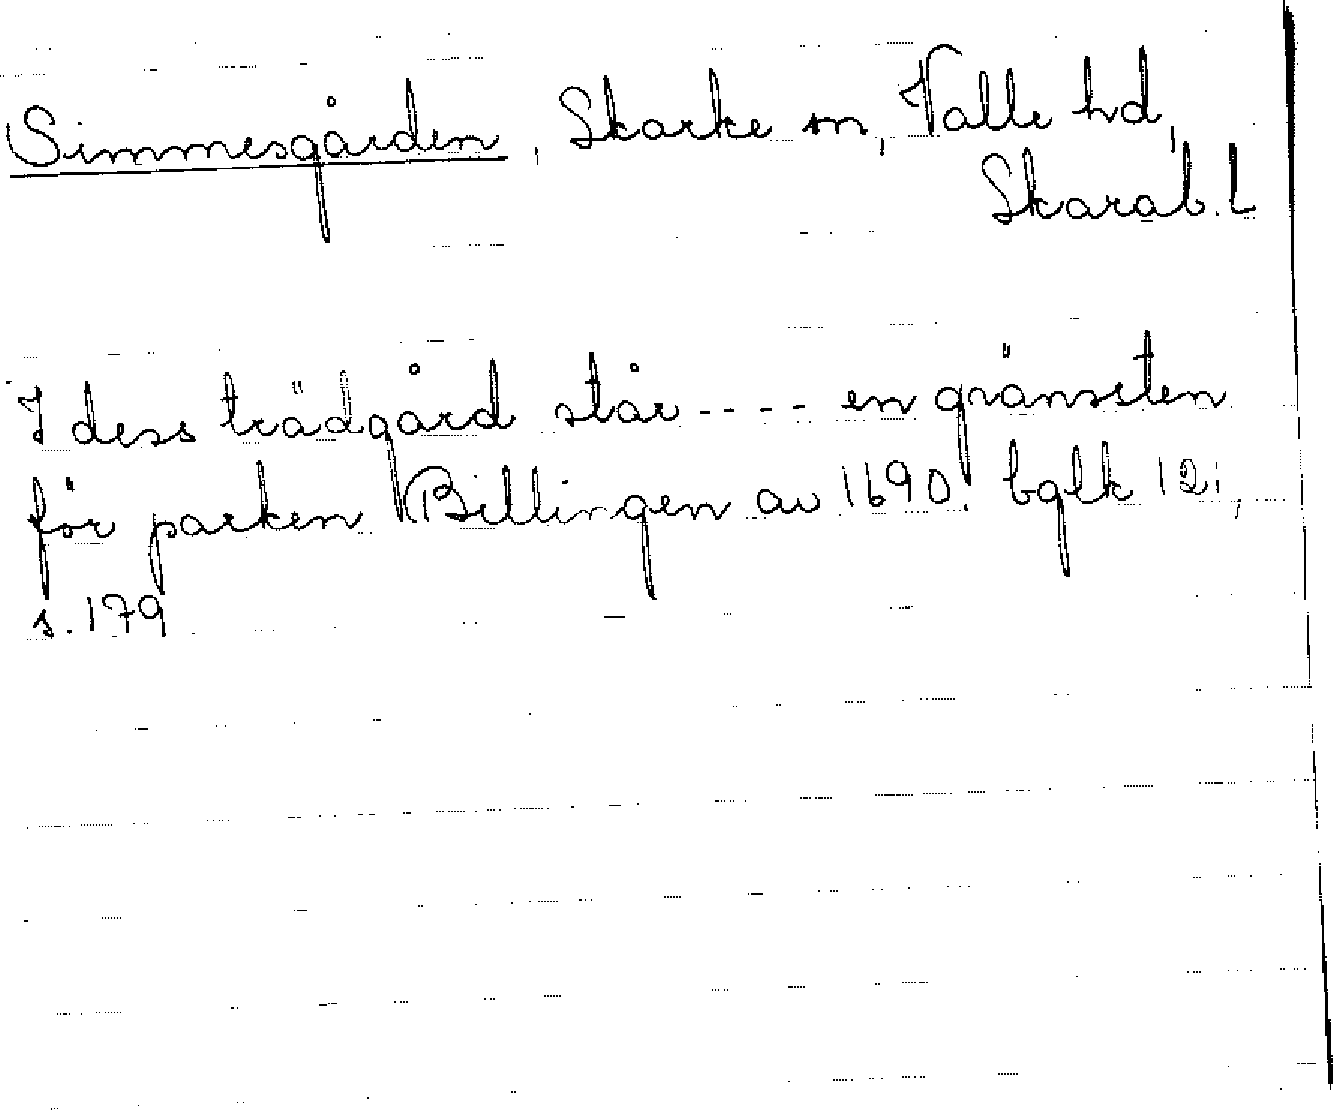 Simmesgården, Skarke sn, Valle hd,
Skarab. L
I dess trädgård står ---- en gränssten
för parken Billingen av 1690. bglk 121,
s. 179